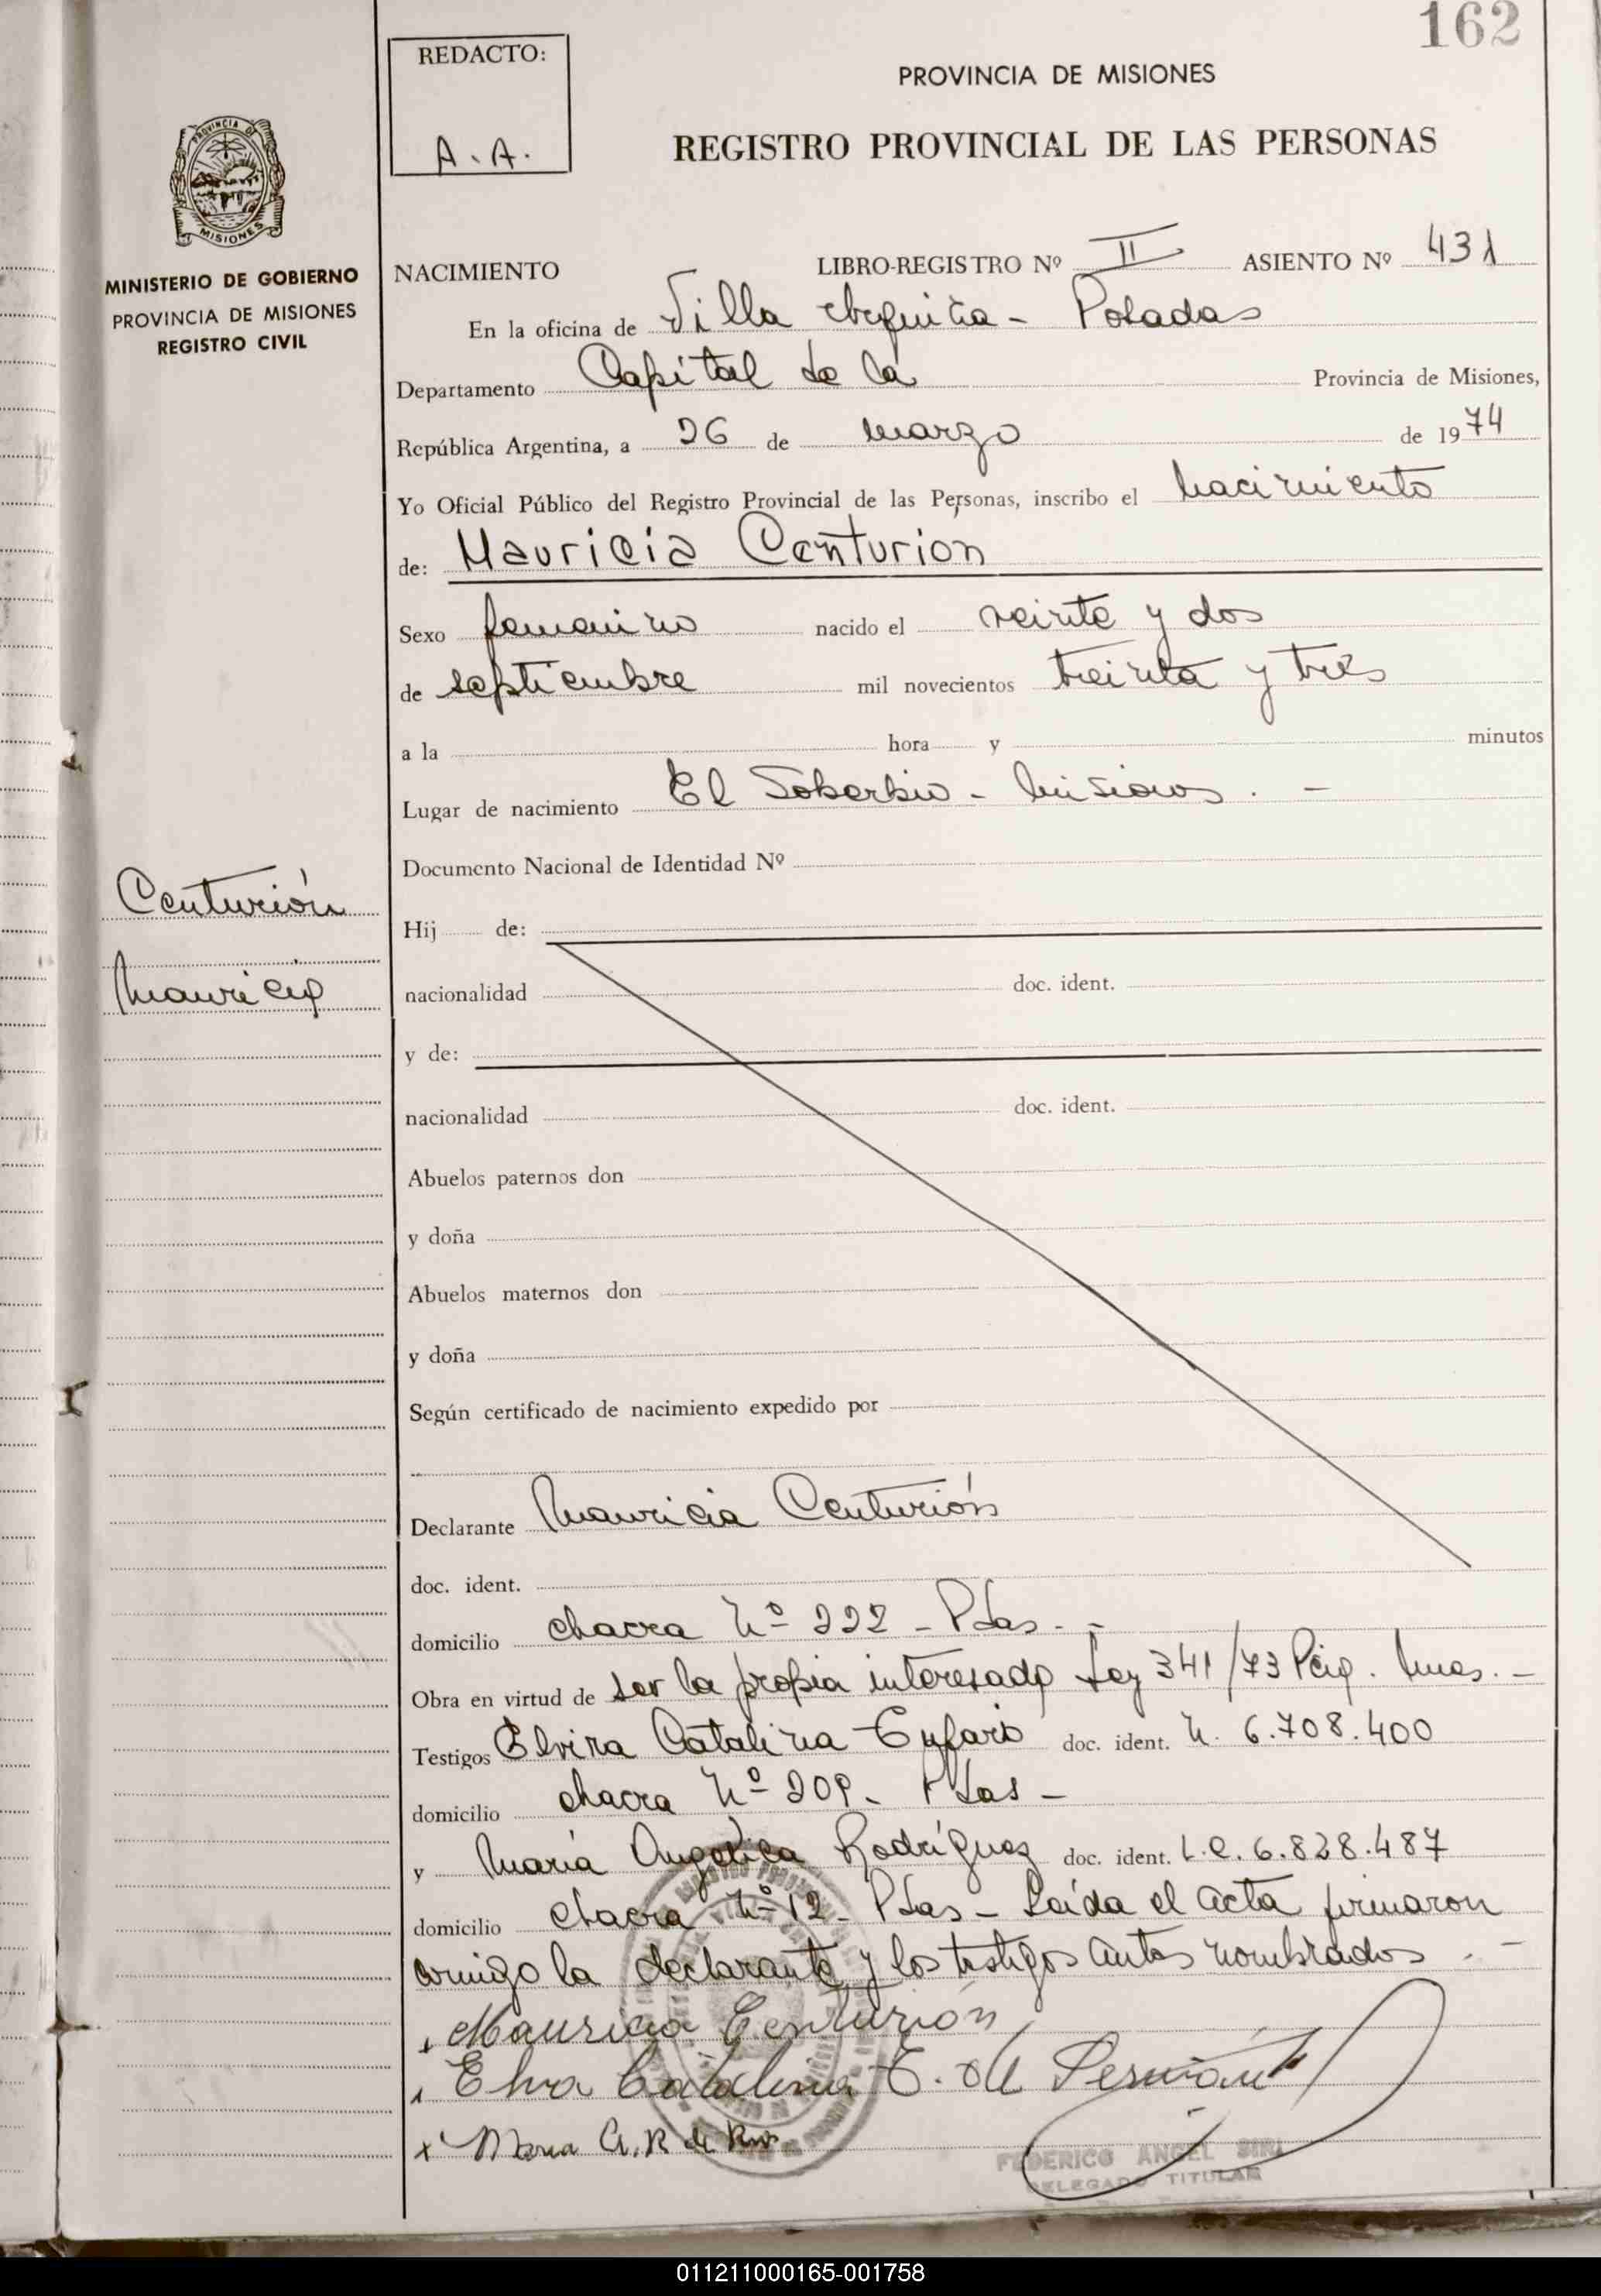 162
REDACTO:
A. A.
PROVINCIA DE MISIONES
REGISTRO PROVINCIAL DE LAS PERSONAS
PROVINCIA DE
MISIONES
MINISTERIO DE GOBIERNO
PROVINCIA DE MISIONES
REGISTRO CIVIL
NACIMIENTO LIBRO-REGISTRO Nº II ASIENTO Nº 431
En la oficina de Villa - Posadas
Departamento Capital de la Provincia de Misiones,
República Argentina, a 26 de marzo de 1974
Yo Oficial Público del Registro Provincial de las Personas, inscribo el nacimiento
de: Mauricia Centurion
Sexo femenino nacido el veinte y dos
de septiembre mil novecientos treinta y tres
a la hora y minutos
Lugar de nacimiento El Soberbio - Misiones. -
Documento Nacional de Identidad Nº
Centurión
Hij de:
Mauricia
nacionalidad doc. ident.
y de:
nacionalidad doc. ident.
Abuelos paternos don
y doña
Abuelos maternos don
y doña
Según certificado de nacimiento expedido por
Declarante Mauricia Centurión
doc. ident.
domicilio chacra Nº 222 - Pdas. -
Obra en virtud de ser la propia interesada Ley 341/73 . -
Testigos Elvira Catalina doc. ident. N. 6.708.400
domicilio chacra Nº 209 - Pdas -
y María Angélica Rodríguez doc. ident. L.C. 6.828.487
domicilio chacra Nº 12 - Pdas - Leída el acta firmaron
conmigo la declarante y los testigos antes nombrados . -
Mauricia Centurión
Elva Catalina C. de
x Maria A. R de Rios
FEDERICO ANGEL SIRI
DELEGADO TITULAR
011211000165-001758